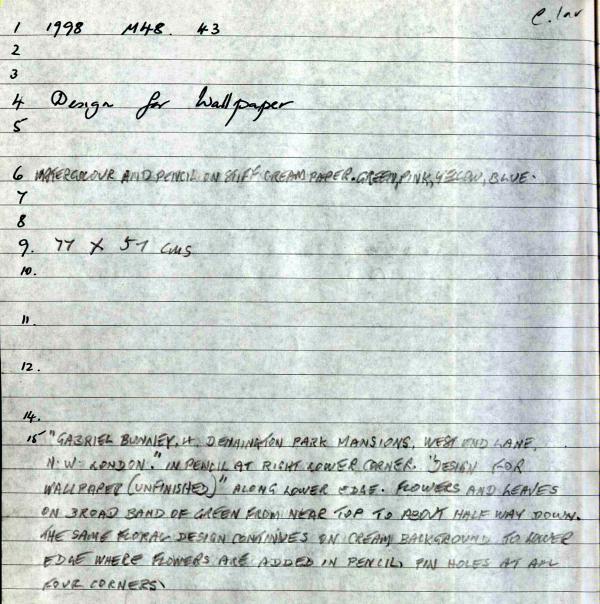 C. lav
1 1998 M48. 43
2
3
4 Design for Wallpaper
5
6 WATERCOLOUR AND PENCIL ON STIFF CREAM PAPER. GREEN, PINK, YELLOW, BLUE.
7
8
9. 77 X 57 cms
10.
11.
12.
14.
15 "GABRIEL BUNNEY, 4, DENNINGTON PARK MANSIONS, WEST END LANE,
N.W. LONDON." IN PENCIL AT RIGHT LOWER CORNER. "DESIGN FOR
WALLPAPER (UNFINISHED)" ALONG LOWER EDGE. FLOWERS AND LEAVES
ON BROAD BAND OF GREEN FROM NEAR TOP TO ABOUT HALF WAY DOWN.
THE SAME FLORAL DESIGN CONTINUES ON CREAM BACKGROUND TO LOWER
EDGE WHERE FLOWERS ARE ADDED IN PENCIL. PIN HOLES AT ALL
FOUR CORNERS.